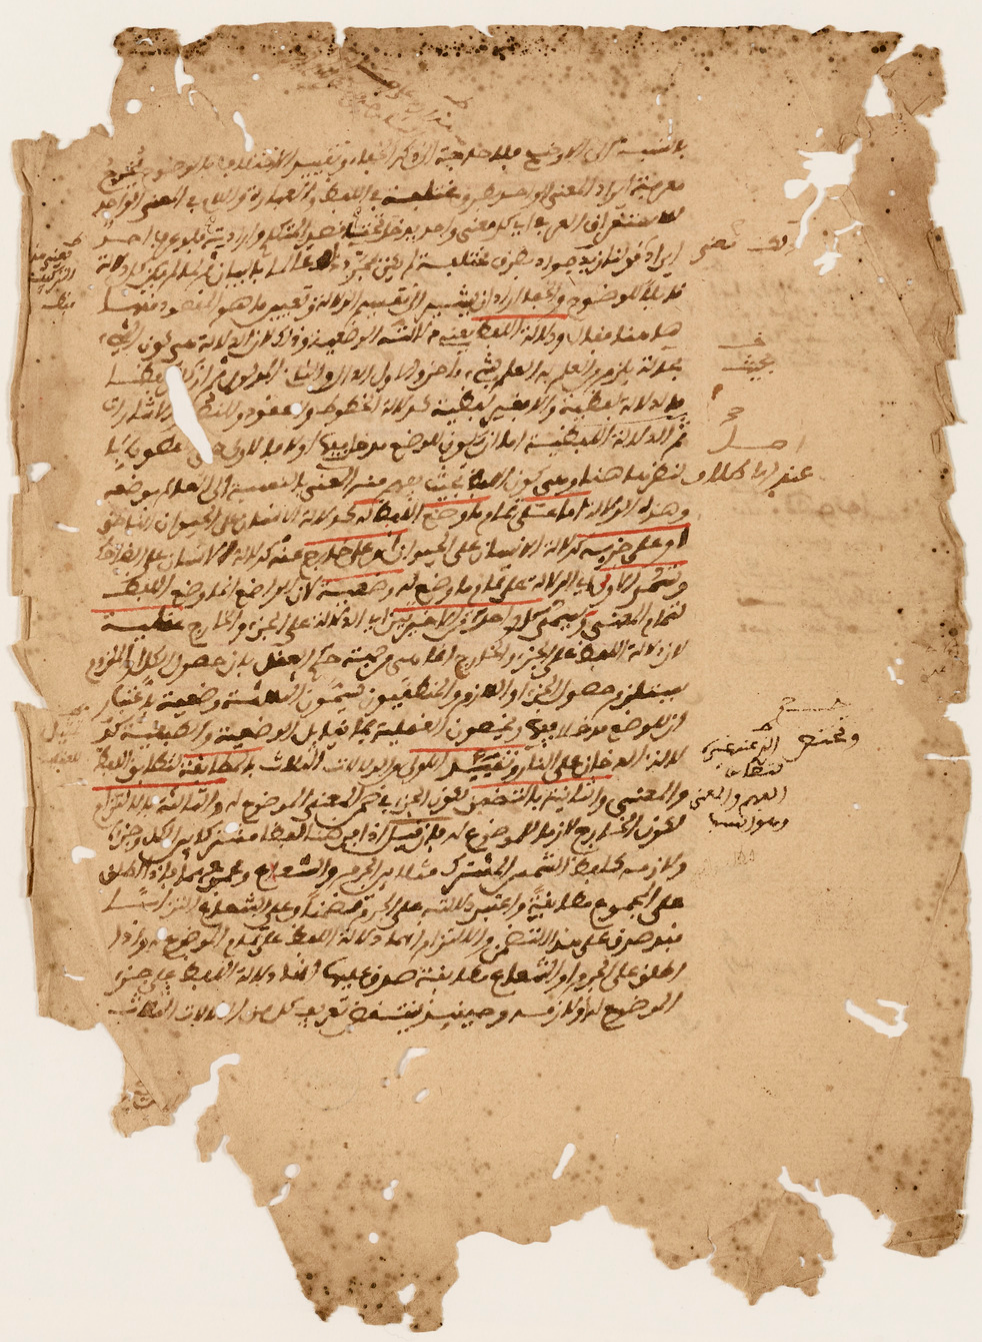 بالنسبة الى الاوضح فلا حاجة الى ذكر الخفاء وتقييد الاختلاف بالوضوح ليخرج
معرفة ايراد المعنى الواحد بطرق مختلفة في اللفظ والعبارة واللام في المعنى الواحد
للاستغراق العرفي اي كل معنى واحد يدخل تحت قصد المتكلم وارادته فلو عرف احد
ايراد قولنا زيد جواد بطرق مختلفة لم يكن بمجرد ذلك عالما بالبيان ثم لما لم يكن كل دلالة
قابلا للوضوح والخفا اراد ان يشير الى تقسيم الدلالة وتعيين ما هو المقصود منها
هاهنا فقال ودلالة اللفظ يعني دلالته الوضعية وذلك لان الدلالة هي كون الشيء
بحالة يلزم من العلم به العلم بشيء آخر والاول الدال والثاني المدلول ثم الدال ان كان لفظا
فالدلالة لفظية والا فغير لفظية كدلالة الخطوط والعقود والنصب والاشارات
ثم الدلالة اللفظية اما ان يكون للوضع مدخل فيها او لا فالاولى هي
النظر هاهنا وهي كون اللفظ بحيث يفهم منه المعنى بالنسبة الى العالم بوضعه
عند اطلاق
وهذه الدلالة اما على تمام ما وضع اللفظ له كدلالة الانسان على الحيوان الناطق
او على جزءه كدلالة الانسان على الحيوان او على خارج عنه كدلالة الانسان على الضاحك
وتسمى الاولى اي الدلالة على تمام ما وضع له وضعية لان الواضع انما وضع اللفظ
لتمام المعنى ويسمى كل واحدة من الاخيرتين اي الدلالة على الجزء والخارج عقلية
لان دلالة اللفظ على الجزء والخارج انما هي من جهة حكم العقل بان حصول الكل او الملزوم
يستلزم حصول الجزء او اللازم والمنطقيون يسمون الثلاثة وضعية باعتبار
ان للوضع مدخلا فيها ويخصون العقلية بما يقابل الوضعية والطبيعية كد
لالة الدخان على النار وتقييد الاولى من الدلالات الثلاث بالمطابقة لتطابق اللفظ
والمعنى والثانية بالتضمن لكون الجزء في ضمن المعنى الموضوع له والثالثة بالالتزام
لكون الخارج لازما للموضوع له فان قيل اذا فرضنا لفظا مشتركا بين الكل وجزئه
ولازمه كلفظ الشمس المشترك مثلا بين الجرم والشعاع ومجموعهما فاذا اطلق
على المجموع مطابقة واعتبر دلالته على الجرم تضمنا وعلى الشعاع التزاما
فقد صدق على هذا التضمن والالتزام انها دلالة اللفظ على تمام الموضوع له واذا
اطلق على الجرم او الشعاع مطابقة صدق عليها انها دلالة اللفظ على جزء
الموضوع له او لازمه وحينئذ ينتقض تعريف كل من الدلالات الثلاث